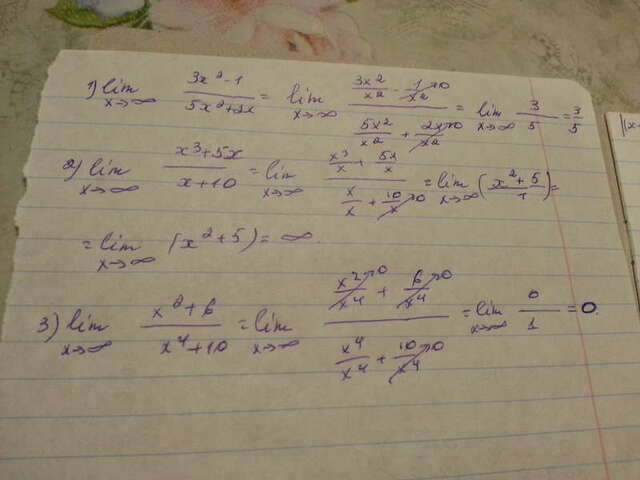 1) lim x→∞ (3x² - 1)/(5x² + 2x) = lim x→∞ (3x²/x² - 1/x²→0)/(5x²/x² + 2x/x²→0) = lim x→∞ 3/5 = 3/5
2) lim x→∞ (x³ + 5x)/(x + 10) = lim x→∞ (x³/x + 5x/x)/(x/x + 10/x→0) = lim x→∞ ((x² + 5)/1) =
= lim x→∞ (x² + 5) = ∞.
3) lim x→∞ (x² + 6)/(x⁴ + 10) = lim x→∞ (x²/x⁴→0 + 6/x⁴→0)/(x⁴/x⁴ + 10/x⁴→0) = lim x→∞ 0/1 = 0.